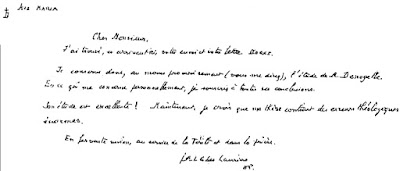 Ave Maria
Cher Monsieur,
J'ai trouvé, ce avant-midi, votre envoi et votre lettre. Merci.
Je conserve donc, au moins provisoirement (vous me direz), l'étude de M.
En ce qui me concerne personnellement, je souscris à toutes ses conclusions.
Son étude est excellente! Maintenant, je crois que ma thèse contient des erreurs théologiques
énormes.
En fervente union, au service de la Vérité et dans la prière.